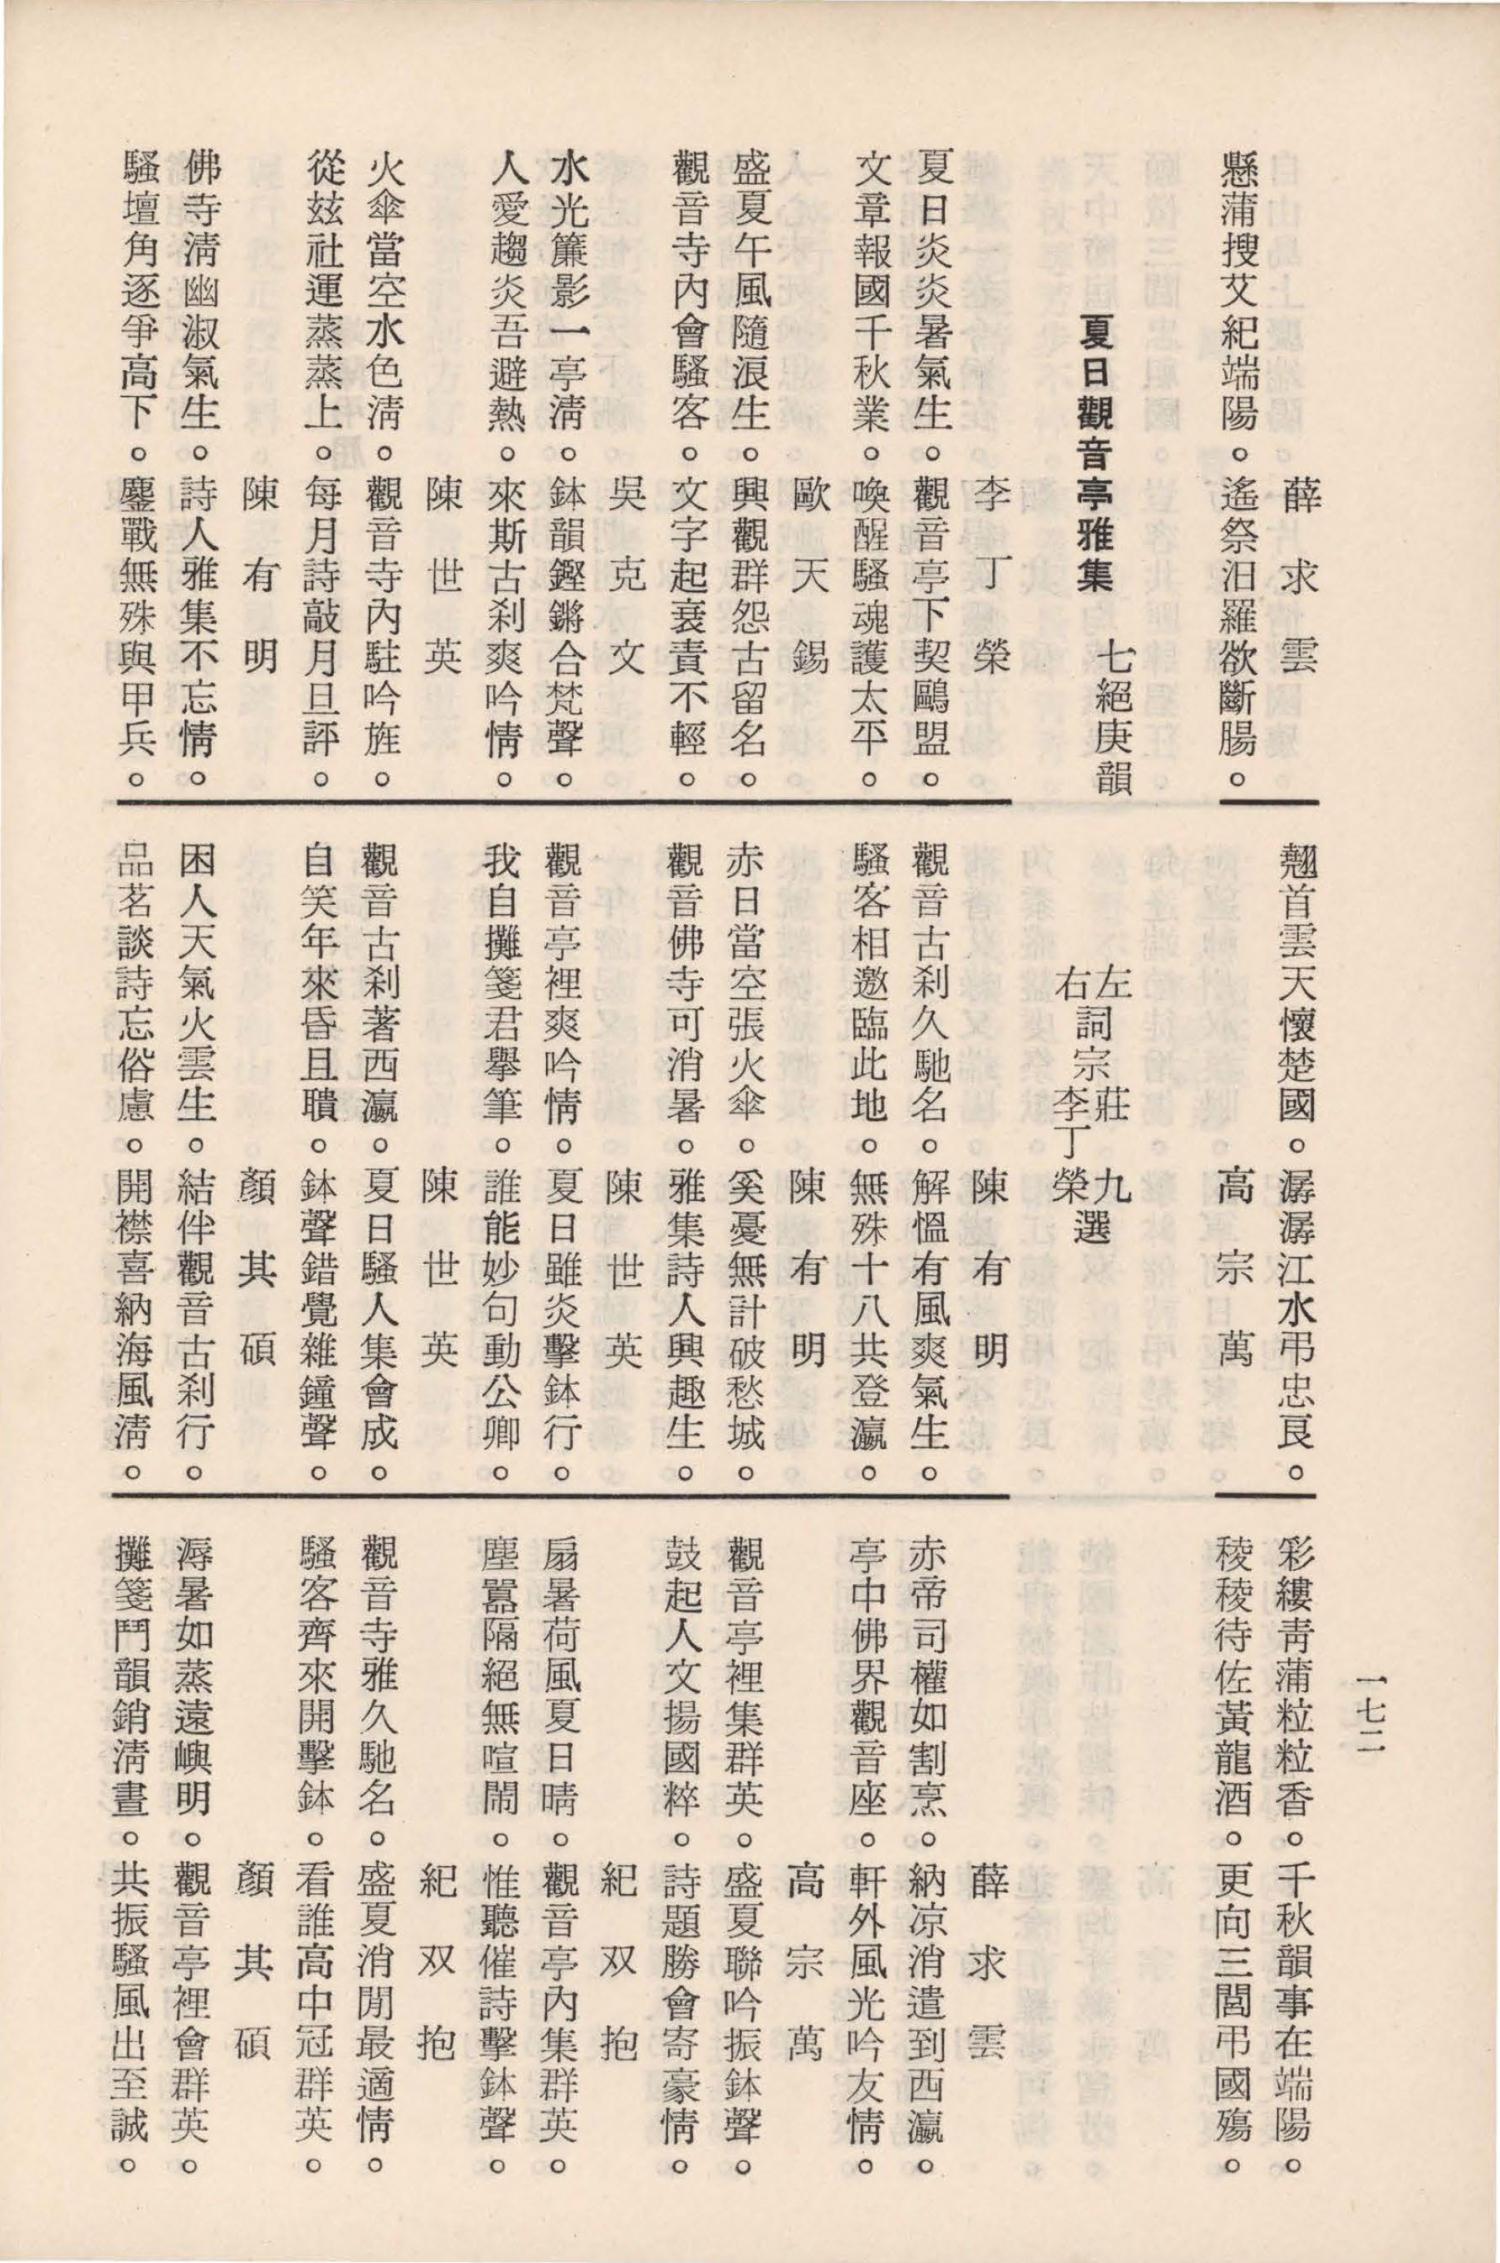 一七二
薛求雲
懸蒲搜艾紀端陽。遙祭汨羅欲斷腸。
翹首雲天懷楚國。潺潺江水弔忠良。
高宗萬
彩縷靑蒲粒粒香。千秋韻事在端陽。
稜稜待佐黃龍酒。更向三閭弔國殤。
夏日觀音亭雅集 七絕庚韻
左右詞宗莊九李丁榮選
李丁榮
夏日炎炎暑氣生。觀音亭下契鷗盟。
文章報國千秋業。喚醒騷魂護太平。
歐天錫
盛夏午風隨浪生。興觀群怨古留名。
觀音寺內會騷客。文字起衰責不輕。
吳克文
水光簾影一亭淸。鉢韻鏗鏘合梵聲。
人愛趨炎吾避熱。來斯古刹爽吟情。
陳世英
火傘當空水色淸。觀音寺內駐吟旌。
從玆社運蒸蒸上。每月詩敲月旦評。
陳有明
佛寺淸幽淑氣生。詩人雅集不忘情。
騷壇角逐爭高下。鏖戰無殊與甲兵。
陳有明
觀音古刹久馳名。解慍有風爽氣生。
騷客相邀臨此地。無殊十八共登瀛。
陳有明
赤日當空張火傘。奚憂無計破愁城。
觀音佛寺可消暑。雅集詩人興趣生。
陳世英
觀音亭裡爽吟情。夏日雖炎擊鉢行。
我自攤箋君擧筆。誰能妙句動公卿。
陳世英
觀音古刹著西瀛。夏日騷人集會成。
自笑年來昏且聵。鉢聲錯覺雜鐘聲。
顏其碩
困人天氣火雲生。結伴觀音古刹行。
品茗談詩忘俗慮。開襟喜納海風淸。
薛求雲
赤帝司權如割烹。納凉消遣到西瀛。
亭中佛界觀音座。軒外風光吟友情。
高宗萬
觀音亭裡集群英。盛夏聯吟振鉢聲。
鼓起人文揚國粹。詩題勝會寄豪情。
紀双抱
扇暑荷風夏日晴。觀音亭內集群英。
塵囂隔絕無喧鬧。惟聽催詩擊鉢聲。
紀双抱
觀音寺雅久馳名。盛夏消閒最適情。
騷客齊來開擊鉢。看誰高中冠群英。
顏其碩
溽暑如蒸遠嶼明。觀音亭裡會群英。
攤箋鬥韻銷淸晝。共振騷風出至誠。